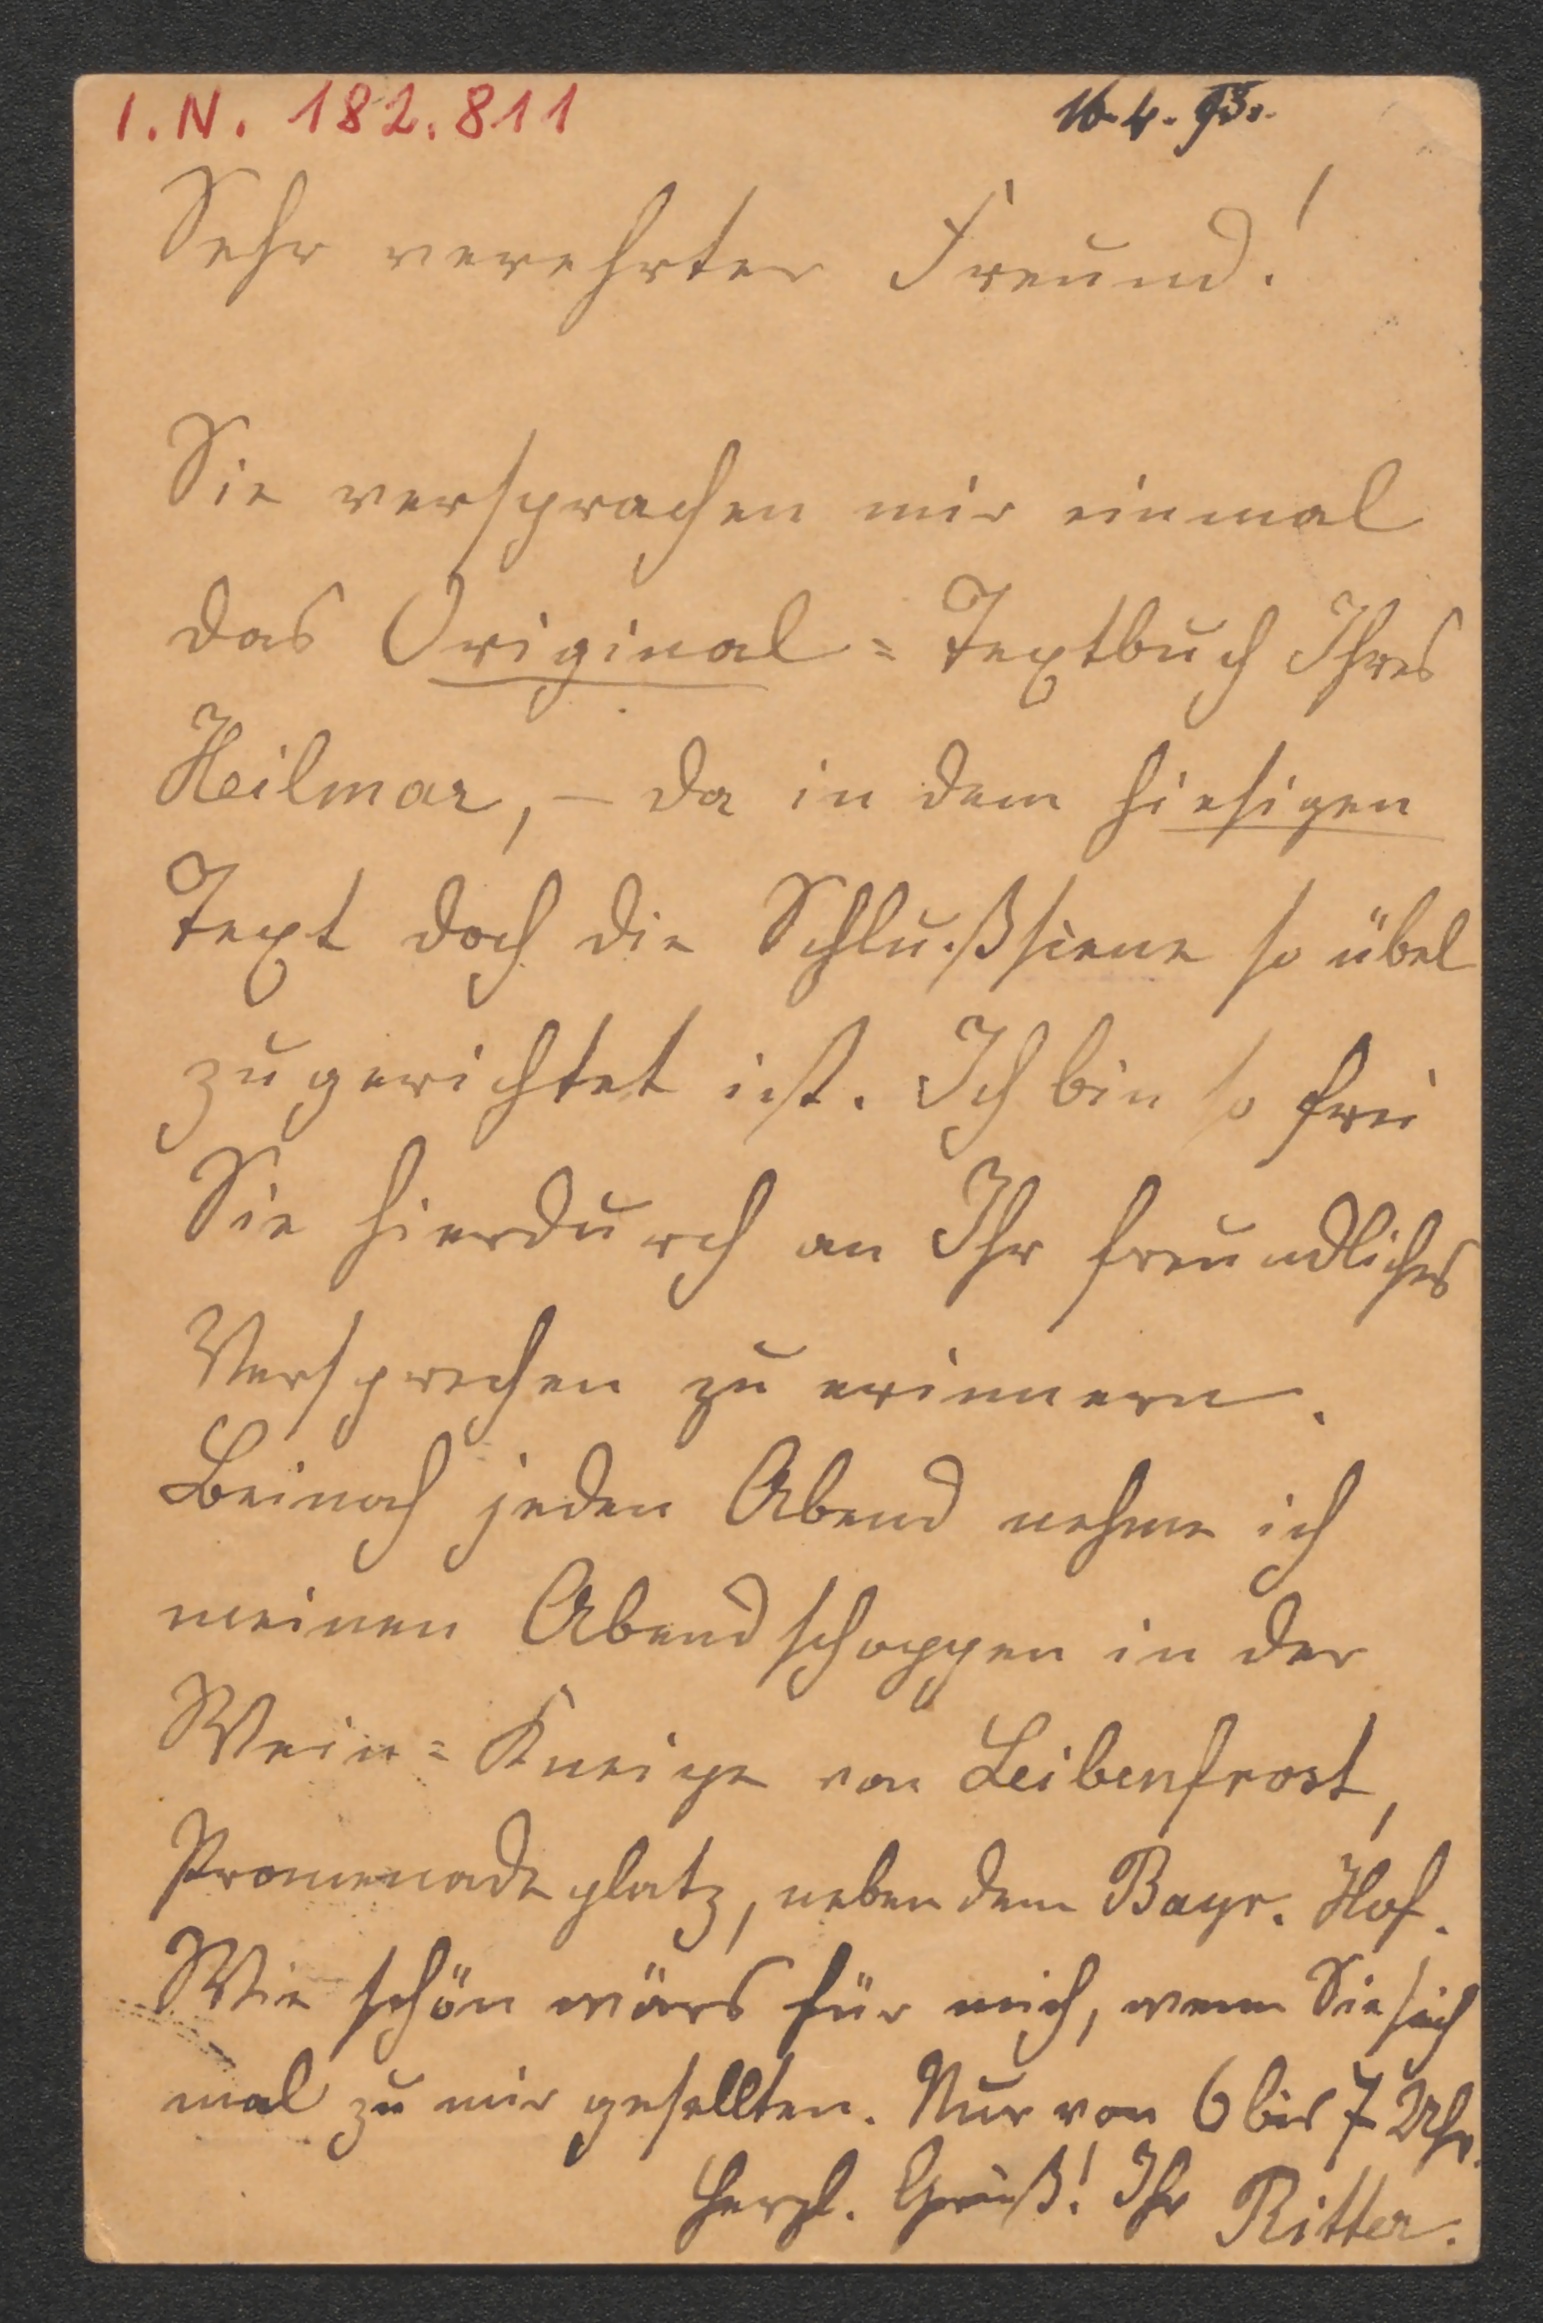 I.N. 182.811
16.4.93.
Sehr verehrter Freund!
Sie versprachen mir einmal
das Original=Textbuch Ihres
Heilmar, – da in dem hiesigen
Text doch die Schlußscene so übel
zugerichtet ist. Ich bin so frei
Sie hierdurch an Ihr freundliches
Versprechen zu erinnern.
Beinah jeden Abend nehme ich
meinen Abendschoppen in der
Wein=Kneipe von Leibenfrost,
Promenadeplatz, neben dem Bayr. Hof.
Wie schön wärs für mich, wenn Sie sich
mal zu mir gesellten. Nur von 6 bis 7 Uhr.
Herzl. Gruß! Ihr Ritter.